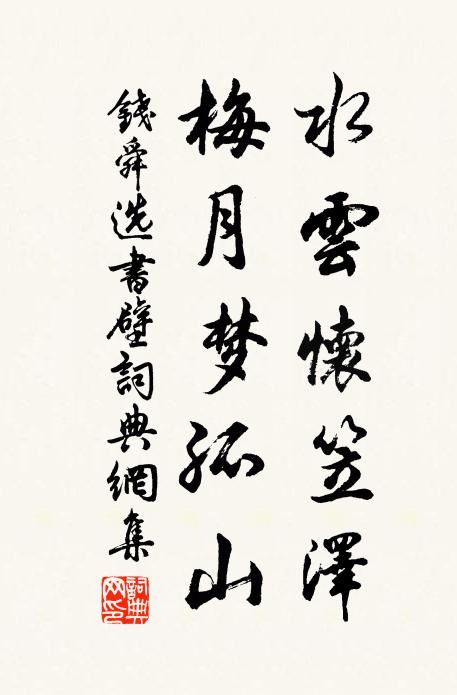 水雲懷笠澤
梅月梦孤山
錢舜选書壁詞典網集
詞典网印